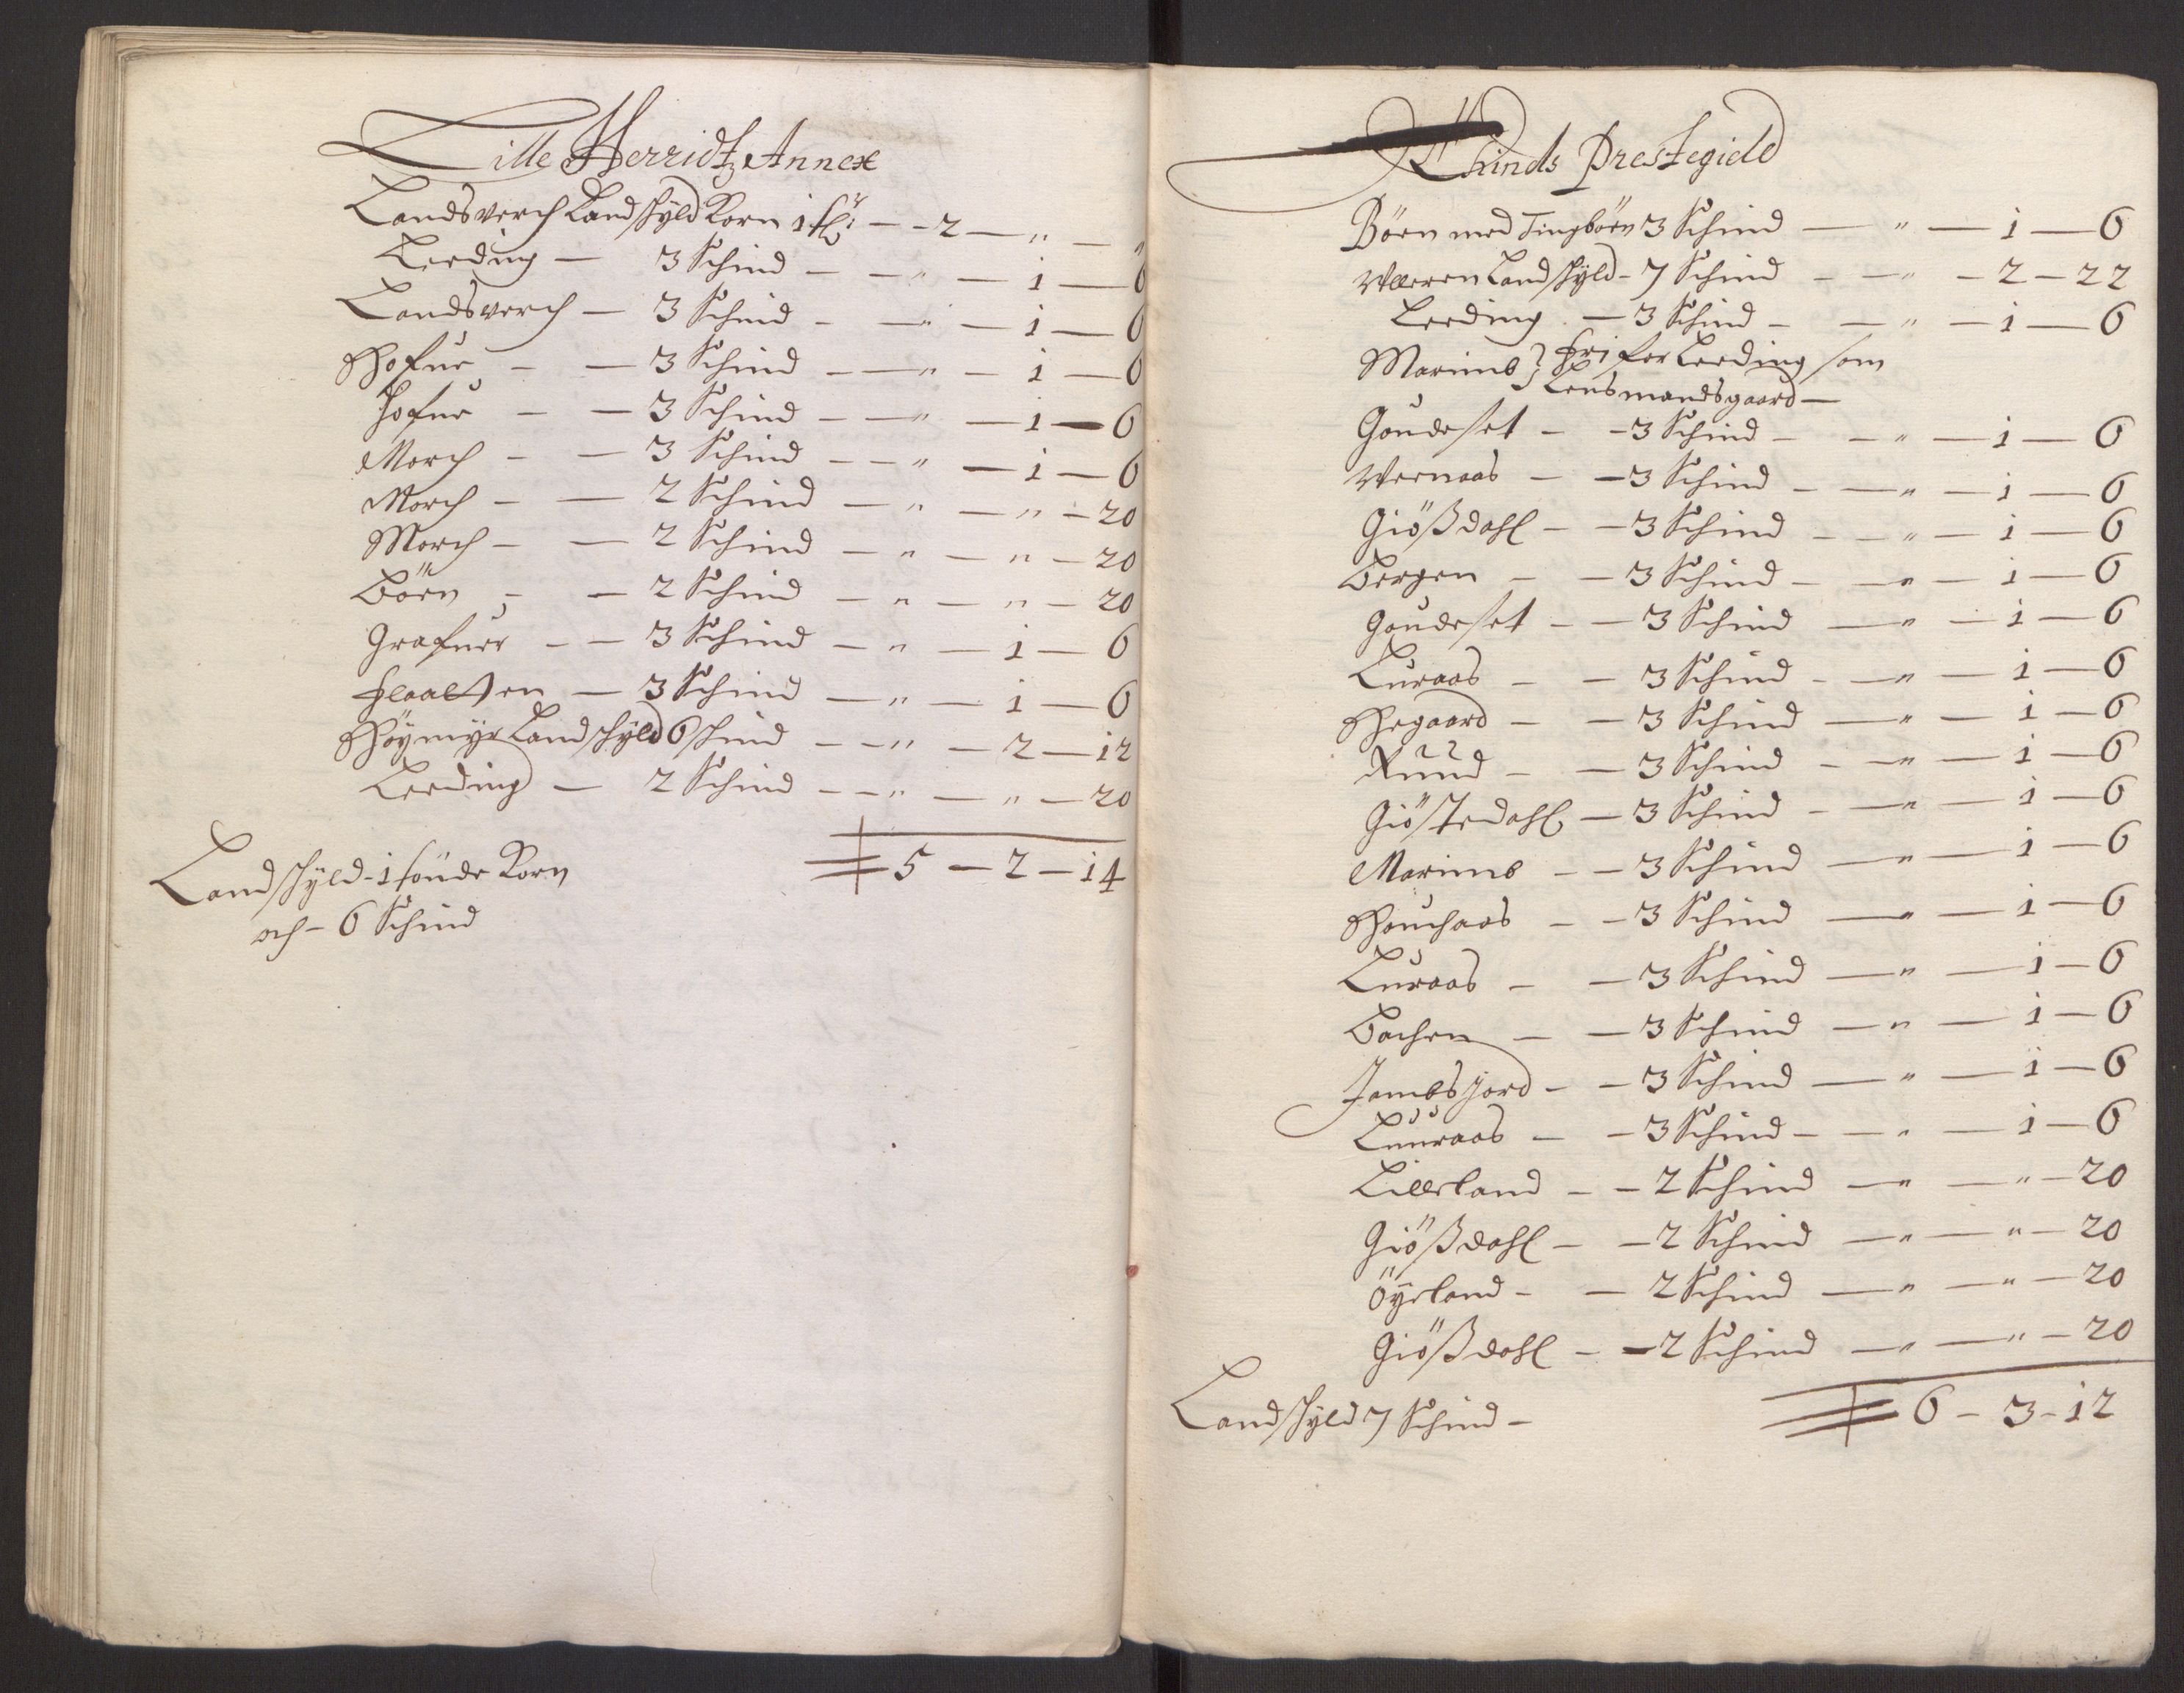 Lille Herridtz Annex
Landsverch Landschÿld Korn 1 - - 2 — " — "
Leeding — 3 Schind — — " — 1 — 6
Landsverch — 3 Schind — — " — 1 — 6
Hofue — — 3 Schind — — " — 1 — 6
Hofue — — 3 Schind — — " — 1 — 6
Morch — — 3 Schind — — " — 1 — 6
Morch — — 2 Schind — " — " — 20
Morch — — 2 Schind — " — " — 20
Böen — — 2 Schind — " — " — 20
Grafuer — — 3 Schind — " — 1 — 6
Flaatten — 3 Schind — " — 1 — 6
Höymÿr Landschÿld 6 schind — — " — 2 — 12
Leeding — 2 Schind — — " — " — 20
5 — 2 — 14
Landschÿld - 1 Korn
och - 6 Schind
Thinds Prestegield
Böen med Tingböen 3 Schind — " — 1 — 6
Ulleren Landschÿld - 7 Schind — — " — 2 — 22
Leeding — 3 Schind — — " — 1 — 6
Marumb } fri for Leeding som
Lensmandsgaard —
Goudeset — — 3 Schind — — " — 1 — 6
Vernaas — — 3 Schind — — " — 1 — 6
Giößdahl — — 3 Schind — — " — 1 — 6
Bergen — — 3 Schind — — " — 1 — 6
Goudeset — — 3 Schind — " — 1 — 6
Luraas — — 3 Schind — — " — 1 — 6
Hegaard — — 3 Schind — " — 1 — 6
Ruud — — 3 Schind — — " — 1 — 6
Giöstedahl — 3 Schind — — " — 1 — 6
Marumb — — 3 Schind — " — 1 — 6
Houchaas — — 3 Schind — " — 1 — 6
Luraas — — 3 Schind — " — 1 — 6
Bachen — — 3 Schind — " — 1 — 6
Jambsjord — — 3 Schind — " — 1 — 6
Luuraas — — 3 Schind — — " — 1 — 6
Lilleland — — 2 Schind — " — " — 20
Giößdahl — — 2 Schind — " — " — 20
Öyeland — — 2 Schind — " — " — 20
Giößdahl — — 2 Schind — " — " — 20
Landschÿld 7 Schind —
6 — 3 — 12